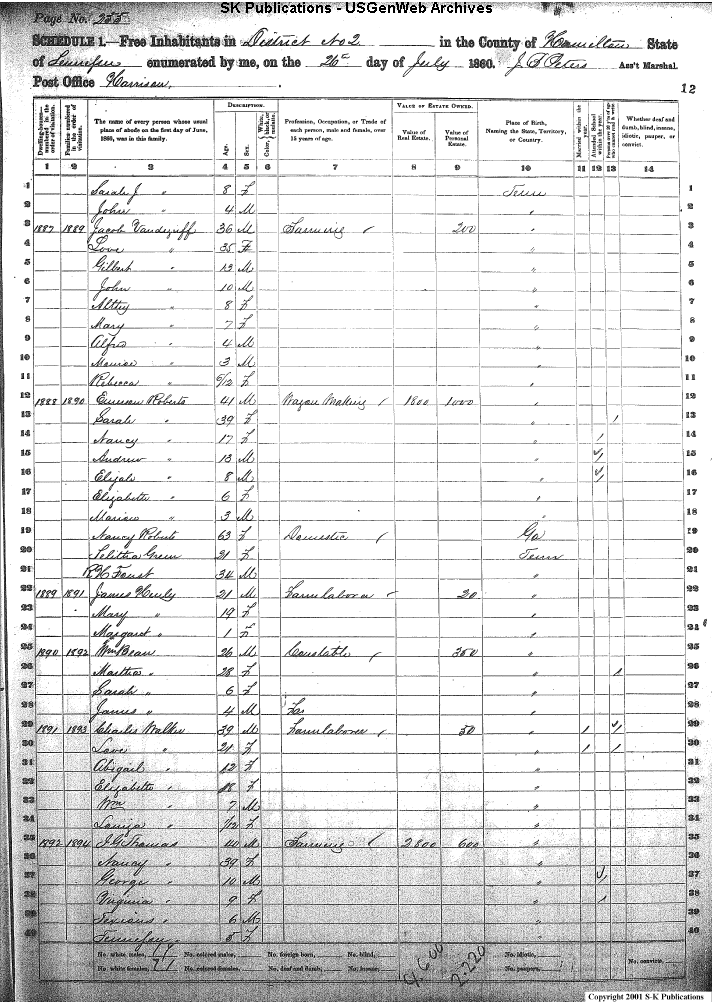 SK Publications - USGenWeb Archives
Page No. 255
SCHEDULE 1.—Free Inhabitants in District No 2 in the County of Hamilton State
of Tennessee enumerated by me, on the 26th day of July 1860. Ass't Marshal.
Post Office Harrison,
12
Dwelling-houses numbered in the order of visitation.
Families numbered in the order of visitation.
The name of every person whose usual place of abode on the first day of June, 1860, was in this family.
DESCRIPTION.
Age.
Sex.
Color,
Profession, Occupation, or Trade of each person, male and female, over 15 years of age.
VALUE OF ESTATE OWNED.
Value of Real Estate.
Value of Personal Estate.
Place of Birth, Naming the State, Territory, or Country.
Married within the year.
Attended School within the year.
Whether deaf and dumb, blind, insane, idiotic, pauper, or convict.
1 2 3 4 5 6 7 8 9 10 11 12 13 14
1 Sarah J " 8 F Tenn 1
2 John " 4 M " 2
3 1887 1889 Jacob Vandegriff 36 M Farming / 200 " 3
4 Love " 35 F " 4
5 Gilbert " 13 M " 5
6 John " 10 M " 6
7 8 F " 7
8 Mary " 7 F " 8
9 Alfred " 4 M " 9
10 " 3 M " 10
11 Rebecca " 6/12 F " 11
12 1888 1890 Roberts 41 M Wagon Making / 1800 1000 " 12
13 Sarah " 39 F " 1 13
14 Nancy " 17 F " 1 14
15 Andrew " 13 M " 1 15
16 Elijah " 8 M " 1 16
17 Elizabeth " 6 F " 17
18 " 3 M " 18
19 Nancy Roberts 63 F Domestic / Ga 19
20 Green 21 F Tenn 20
21 Foust 34 M " 21
22 1889 1891 James Henly 21 M Farm laborer / 20 " 22
23 Mary " 19 F " 23
24 Margaret " 1 F "
25 1890 1892 Wm Bean 26 M Constable / 350 " 25
26 Martha " 28 F " 1 26
27 Sarah " 6 F " 27
28 James " 4 M Fa " 28
29 1891 1893 Charles Walker 39 M Farm laborer / 50 " 1 1 29
30 Love " 21 F " 1 1 30
31 Abigail " 12 F " 31
32 Elizabeth " F " 32
33 Wm " 7 M " 33
34 Louiza " /12 F " 34
35 1892 1894 J G Thomas 40 M Farming / 2800 600 " 35
36 Nancy " 39 F " 36
37 George " 10 M " 1 37
38 Virginia " 9 F " 1 38
39 " 6 M " 39
40 5 F " 40
No. white males, No. colored males, No. foreign born, No. blind, No. idiotic, No. convicts,
No. white females, No. colored females, No. deaf and dumb, No. insane, No. paupers,
4.600 2.220
Copyright 2001 S-K Publications